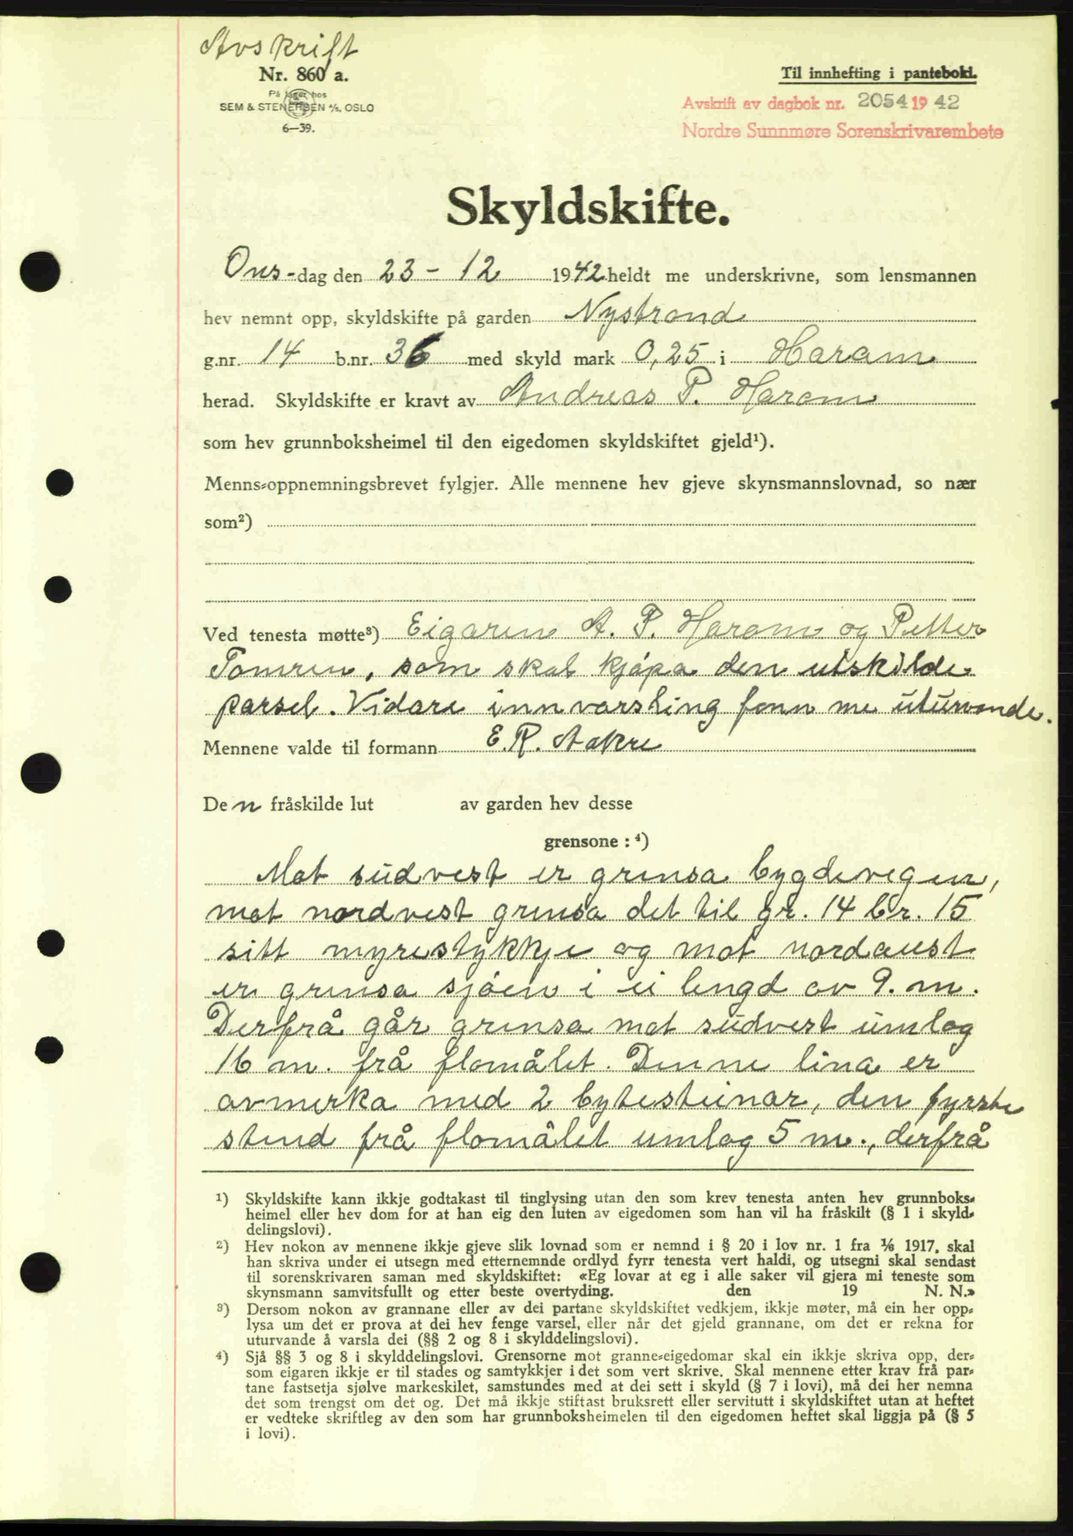 Avskrift
Nr. 860 a.
På lager hos
SEM & STENERSEN A/S, OSLO
6—39.
Til innhefting i pantebok.
Avskrift av dagbok nr. 2054 19 42
Nordre Sunnmøre Sorenskrivarembete
Skyldskifte.
Ons-dag den 23 - 12 1942 heldt me underskrivne, som lensmannen
hev nemnt opp, skyldskifte på garden Nystrand
g.nr. 14 b.nr. 36 med skyld mark 0,25 i Haram
herad. Skyldskifte er kravt av Andreas P. Haram
som hev grunnboksheimel til den eigedomen skyldskiftet gjeld¹).
Menns-oppnemningsbrevet fylgjer. Alle mennene hev gjeve skynsmannslovnad, so nær
som²)
Ved tenesta møtte³) Eigaren A. P. Haram og Petter
Tomren, som skal kjøpa den utskilde
parsel. Vidare innvarsling fann me uturvande.
Mennene valde til formann E. R. Aakre
Den fråskilde lut av garden hev desse
grensone : ⁴)
Mot sudvest er grensa bygdevegen,
mot nordvest grensa det til gr. 14 br. 15
sitt myrestykkje og mot nordaust
er grensa sjøen i ei lengd av 9. m.
Derfrå går grensa mot sudvest umlag
16 m. frå flomålet. Denne lina er
avmerka med 2 bytesteinar, den fyrste
stend frå flomålet umlag 5 m., derfrå
¹) Skyldskifte kann ikkje godtakast til tinglysing utan den som krev tenesta anten hev grunnboks-
heimel eller hev dom for at han eig den luten av eigedomen som han vil ha fråskilt (§ 1 i skyld-
delingslovi).
²) Hev nokon av mennene ikkje gjeve slik lovnad som er nemnd i § 20 i lov nr. 1 fra 1/6 1917, skal
han skriva under ei utsegn med etternemnde ordlyd fyrr tenesta vert haldi, og utsegni skal sendast
til sorenskrivaren saman med skyldskiftet: «Eg lovar at eg i alle saker vil gjera mi teneste som
skynsmann samvitsfullt og etter beste overtyding. den 19 N. N.»
³) Dersom nokon av grannane eller av dei partane skyldskiftet vedkjem, ikkje møter, må ein her opp-
lysa um det er prova at dei hev fenge varsel, eller når det gjeld grannane, om det er rekna for
uturvande å varsla dei (§§ 2 og 8 i skylddelingslovi).
⁴) Sjå §§ 3 og 8 i skylddelingslovi. Grensorne mot granne-eigedomar skal ein ikkje skriva opp, der-
som eigaren ikkje er til stades og samtykkjer i det som vert skrive. Skal mennene etter krav frå par-
tane fastsetja sjølve markeskilet, samstundes med at dei sett i skyld (§ 7 i lovi), må dei her nemna
det som trengst om det og. Det må ikkje stiftast bruksrett eller servitutt i skyldskiftet utan at heftet
er vedteke skriftleg av den som har grunnboksheimelen til den eigedomen heftet skal liggja på (§ 5
i lovi).